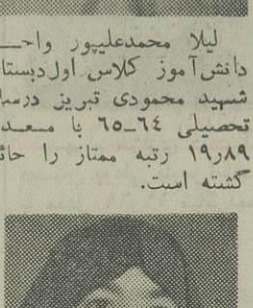 لیلا محمدعلیپور واحـ
دانش‌آموز کلاس اول دبستا
شهید محمودی تبریز درسا
تحصیلی ۶۴ـ۶۵ با معد
۱۹ر۸۹ رتبه ممتاز را حائ
گشته است.